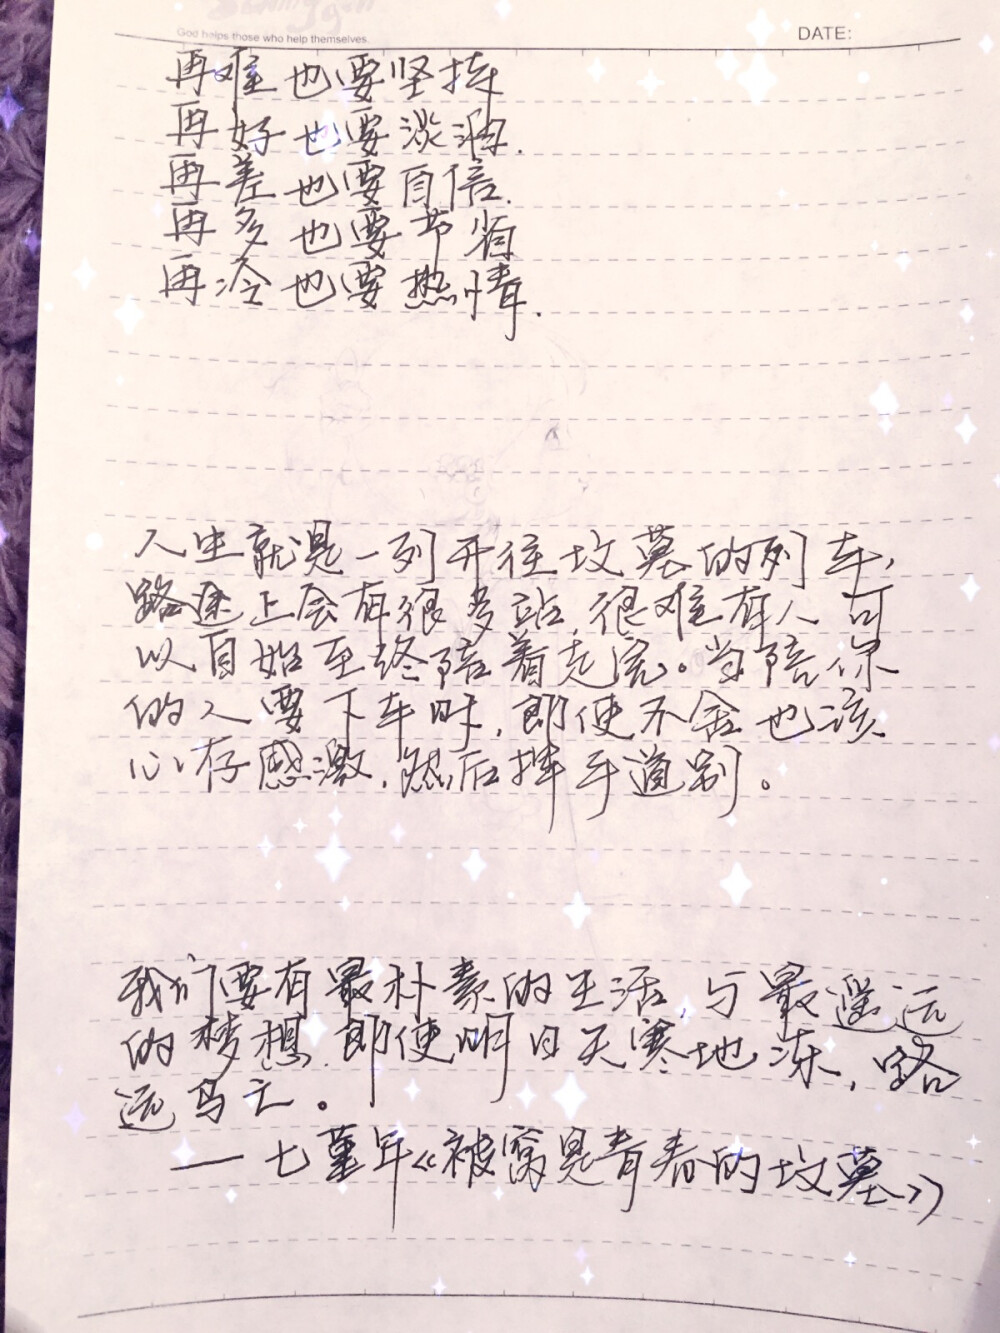 God helps those who help themselves.
DATE:
再难也要坚持
再好也要淡泊.
再差也要自信.
再多也要节省
再冷也要热情.
人生就是一列开往坟墓的列车,
路途上会有很多站,很难有人可
以自始至终陪着走完。当陪你
的人要下车时,即使不舍也该
心存感激,然后挥手道别。
我们要有最朴素的生活,与最遥远
的梦想.即使明日天寒地冻,路
远马亡。
——七堇年《被窝是青春的坟墓》